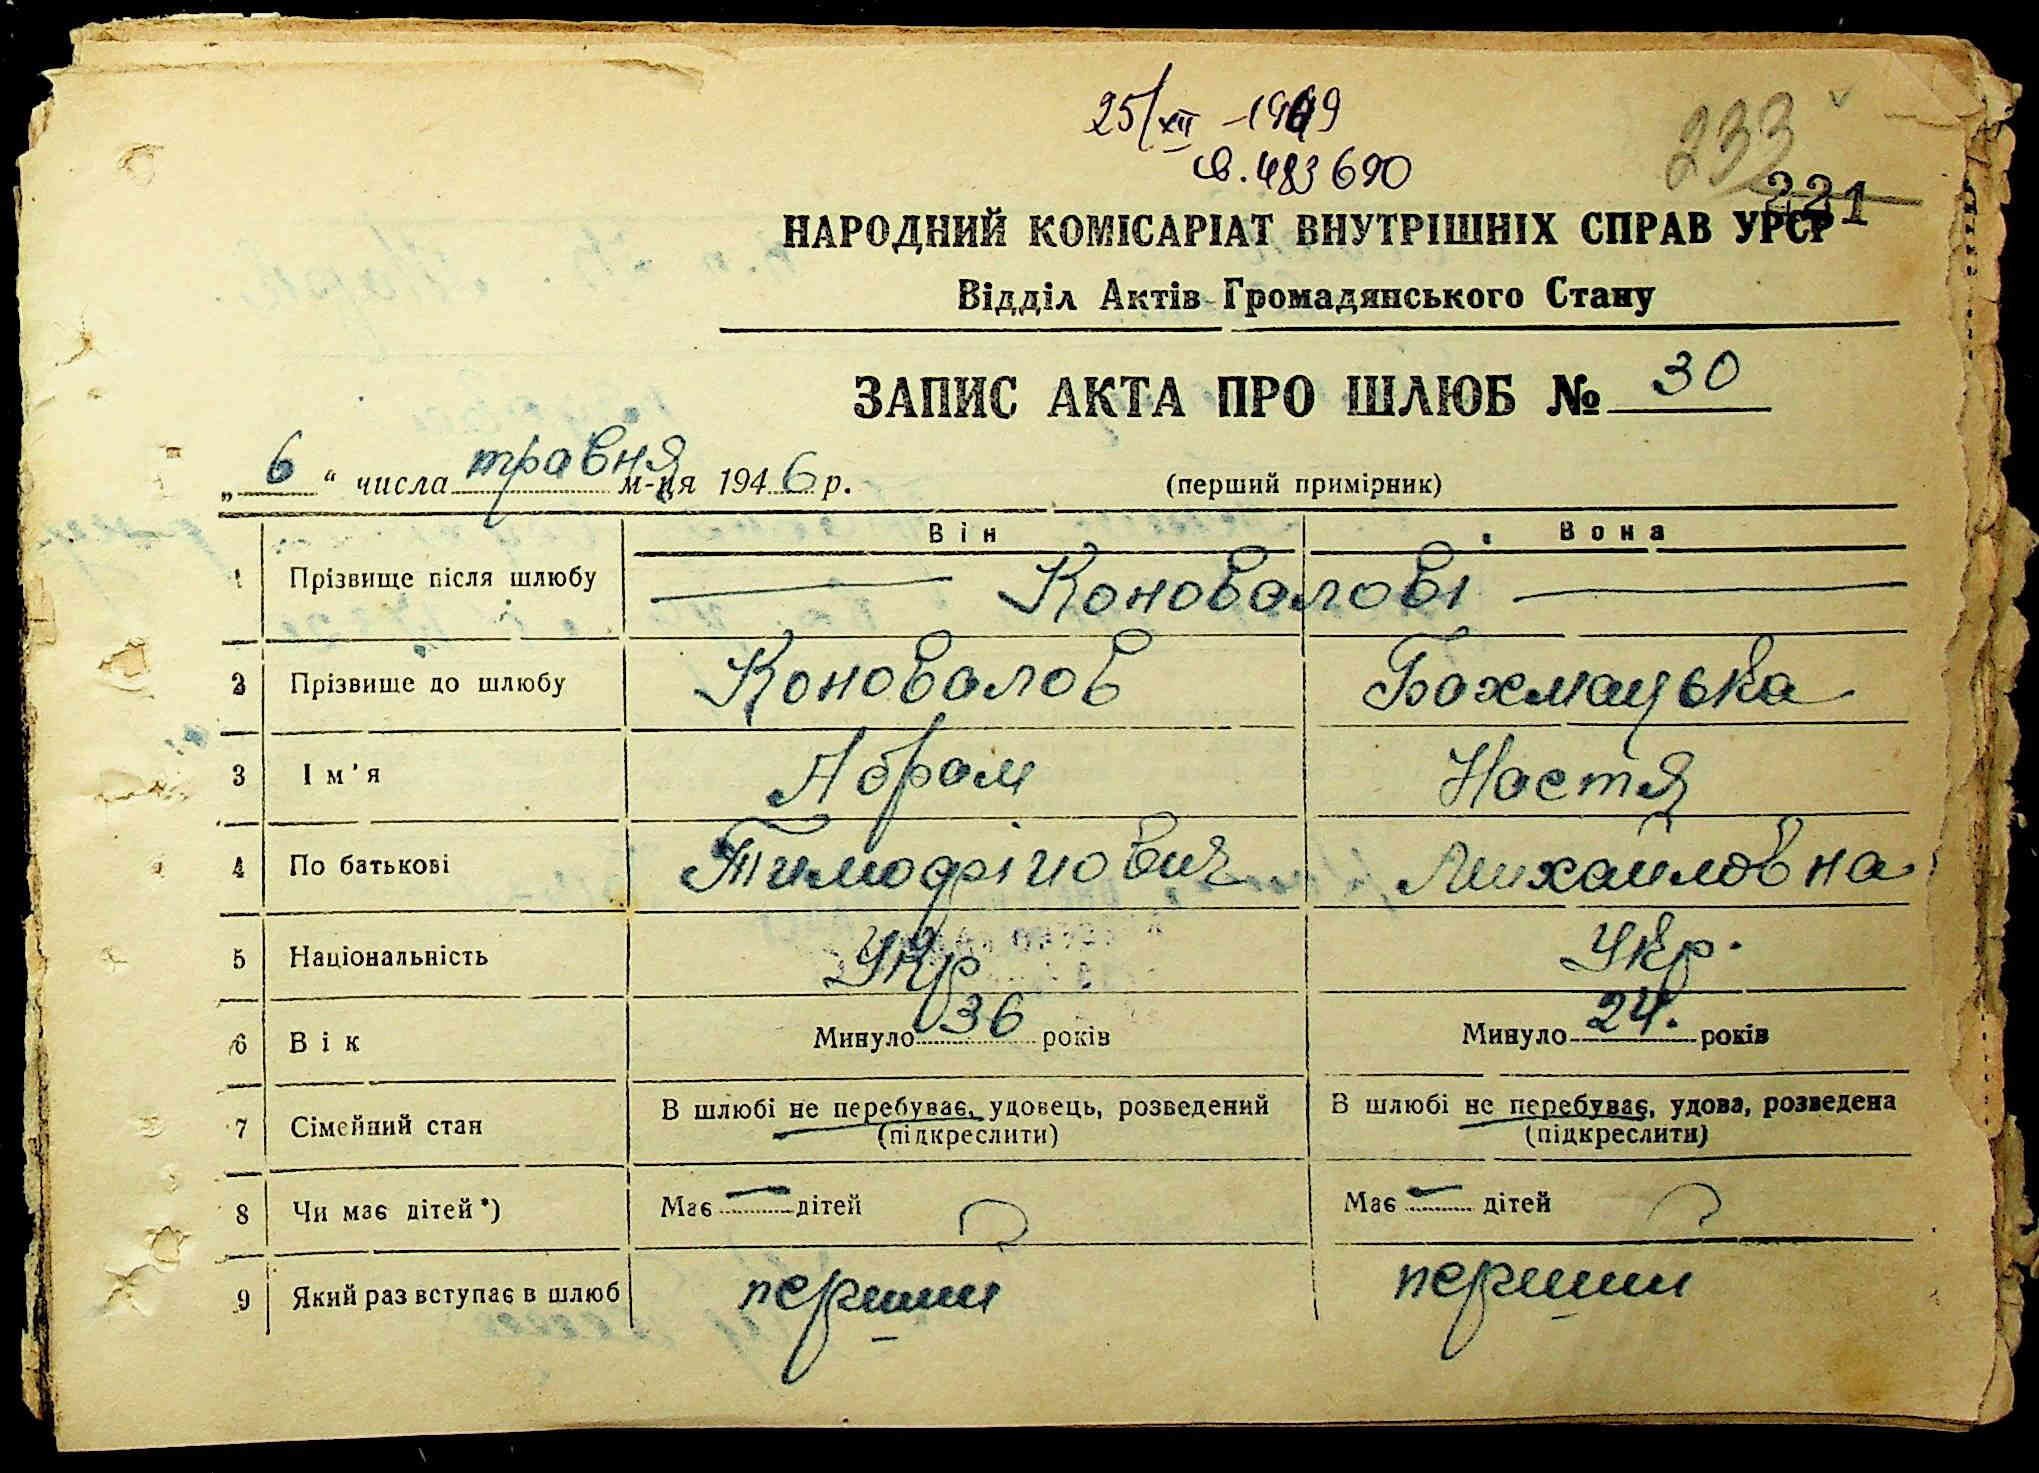 25/XII -1949
св. 483690
233
221
НАРОДНИЙ КОМІСАРІАТ ВНУТРІШНІХ СПРАВ УРСР
Відділ Актів Громадянського Стану
ЗАПИС АКТА ПРО ШЛЮБ № 30
„ 6 “ числа травня м-ця 1946 р. (перший примірник)
Він Вона
1 Прізвище після шлюбу Коновалові
2 Прізвище до шлюбу Коновалов Бохмацька
3 Ім'я Абрам Настя
4 По батькові Тимофійович Михайловна
5 Національність Укр Укр.
6 Вік Минуло 36 років Минуло 24. років
7 Сімейний стан В шлюбі не перебуває, удовець, розведений В шлюбі не перебуває, удова, розведена
(підкреслити) (підкреслити)
8 Чи має дітей*) Має — дітей Має — дітей
9 Який раз вступає в шлюб перший перший